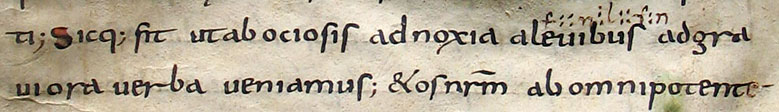 ti; Sicq; fit utabociosis adnoxia aleuibus adgra
uiora uerba ueniamus; &osnrm̅ abomnipotente